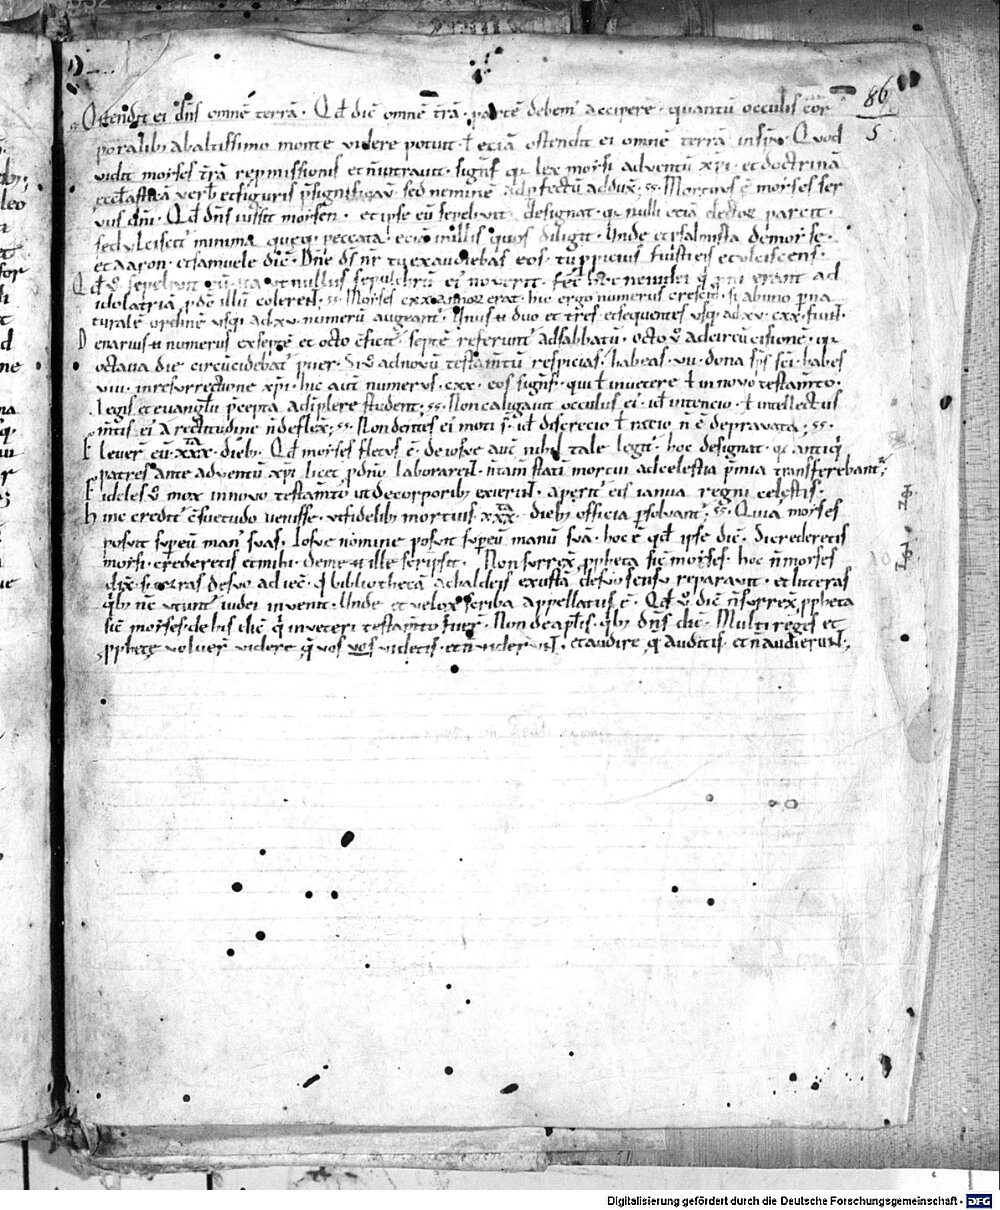 86
5
Ostendit ei dñs omnē terrā · Qd̄ dic̄ omnē t̄rā · partē debem᷒ accipere · quantū occulis cor
poralib; ab altissimo monte videre potuit · ł eciā ostendit ei omnē terrā in sp̄u · Quod
vidit moẏses t̄rā repmissionis et n̄ intravit · signf̄ qr̄ lex moẏsi adventū xp̄i · et doctrinā
verb et figuris p̄significav̄ · sed neminē ad p̄fectū addux̄ · Mortuus ē moẏses ser
vus dn̄i · Qd̄ dn̄s iussit moẏsen · et ipse eū sepelivit · designat · qr̄ nulli eciā elector̄ parcit ·
sed ulciscit᷒ minima queq; peccata · eciā in illis quos diligit · Unde et psalmista de moẏse ·
et aaron · et samuele dic̄ · Dn̄e ds̄ nr̄ tu exaudiebas eos · tu ppicius fuisti eis et ulciscens ·
Qd̄ v̄ sepelivit eū · ut nullus sepulchrū ei᷒ noverit · fec̄ hoc ne iudei q̄ pni erant ad
idolatriā p dō illū colerent · Moẏses · cxx · annor̄ erat · hic ergo numerus crescit · si ab uno p na
turale ordinē usq; ad · xv · numerū augeant᷒ · Unus · duo et tres · et sequentes usq; ad · xv · cxx · fiunt ·
Denarius numerus ex septē et octo c̄ficit᷒ · septē referunt᷒ ad sabbatū · octo v̄ ad circūcisionē · qr̄
octava die circūcidebat᷒ puer · Si v̄ ad novū testam̄tū respicias · habeas · vii · dona sp̄s sc̄i · habes
viii · in resurrectione xp̄i · hic aut̄ numerus · cxx · eos signf̄ · qui ł in vetere ł in novo testam̄to ·
legis et evanglii p̄cepta adīplere student · Non caligavit occulus ei᷒ · id ē intencio · ł intellectus
m̄tis ei᷒ a rectitudine n̄ deflex̄ · Non dentes ei᷒ moti s̄ · id ē discrecio ł racio n̄ ē depravata ·
Flever̄ eū · xxx · dieb; · Qd̄ moẏses fletus ē · de iosue aut̄ nihil tale legit᷒ · hoc designat · qr̄ antiq̄
patres ante adventū xp̄i licet p dn̄o laborarent · n̄ tam̄ statī mortui ad celestia p̄mia transferebant᷒
Fideles v̄ mox in novo testam̄to ut de corporib; exierint · aperit᷒ eis ianua regni celestis ·
hinc credit᷒ c̄suetudo venisse · ut fidelib; mortuis xxx · dieb; officia p̄solvant᷒ · Quia moẏses
posuit sup eū man᷒ suas · Iosue nomine posuit sup eū manū suā · hoc ē qd̄ ipse dic̄ · Si crederetis
moẏsi · crederetis et mihi · de me ń ille scripsit · Non surrex̄ ppheta sic̄ moẏses · hoc n̄ moẏses
de suo adiec̄ · q̄ bibliothecā a chaldeis exustā de suo sensu reparavit · et litteras
q̄b; nc̄ utunt᷒ iudei invenit · Unde et velox scriba appellatus ē · Qd̄ v̄ dic̄ n̄ surrex̄ ppheta
sic̄ moẏses · de his dic̄ q̄ in veteri testam̄to fuer̄ · Non de aplis · q̄b; dn̄s dic̄ · Multi reges et
pphete voluer̄ videre q̄ vos vos videtis · et n̄ viderunt · et audire q̄ auditis · et n̄ audierunt ·
Digitalisierung gefördert durch die Deutsche Forschungsgemeinschaft - DFG